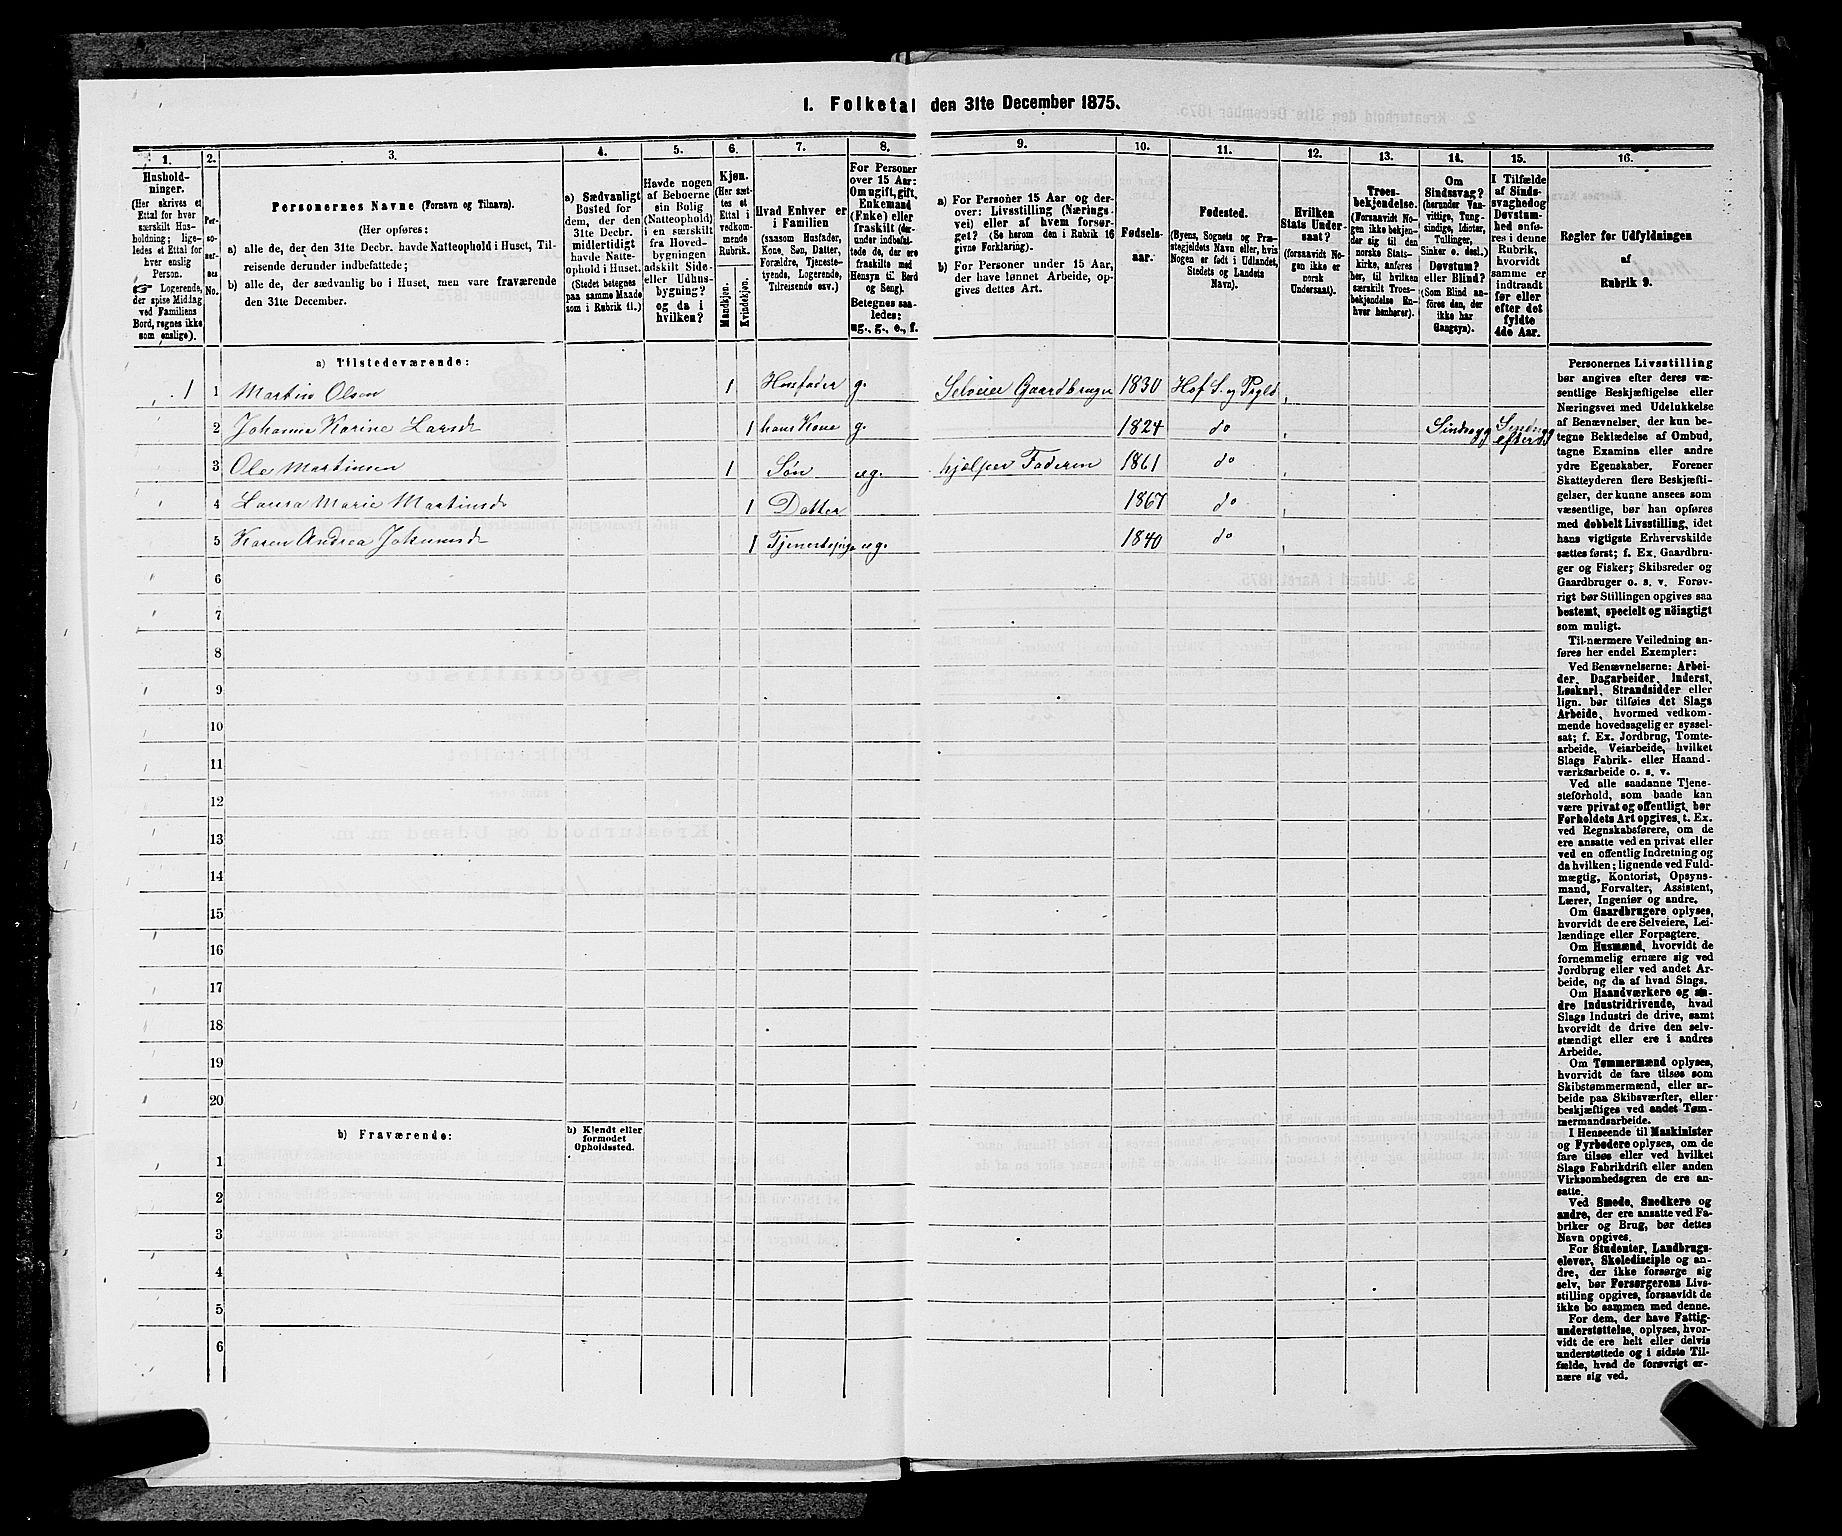 1. Folketal den 31te December 1875.
1. 2. 3. 4. 5. 6. 7. 8. 9. 10. 11. 12. 13. 14. 15. 16.
Hushold-
ninger.
(Her skrives et
Ettal for hver
særskilt Hus-
holdning; lige-
ledes et Ettal for
hver enslig
Person.
☞ Logerende,
der spise Middag
ved Familiens
Bord, regnes ikke
som enslige).
Per-
so-
ner-
nes
No.
Personernes Navne (Fornavn og Tilnavn).
(Her opføres:
a) alle de, der den 31te Decbr. havde Natteophold i Huset, Til-
reisende derunder indbefattede;
b) alle de, der sædvanlig bo i Huset, men vare fraværende
den 31te December.
a) Sædvanligt
Bosted for
dem, der den
31te Decbr.
midlertidigt
havde Natte-
ophold i Huset.
(Stedet betegnes
paa samme Maade
som i Rubrik 11.)
Havde nogen
af Beboerne
sin Bolig
(Natteophold)
i en særskilt
fra Hoved-
bygningen
adskilt Side-
eller Udhus-
bygning?
og da i
hvilken?
Kjøn.
(Her sæt-
tes et
Ettal i
vedkom-
mende
Rubrik.
Mandkjøn.
Kvindekjøn.
Hvad Enhver er
i Familien
(saasom Husfader,
Kone, Søn, Datter,
Forældre, Tjeneste-
tyende, Logerende,
Tilreisende osv.)
For Personer
over 15 Aar:
Om ugift, gift,
Enkemand
(Enke) eller
fraskilt (der-
under indbefat-
tede de, der ere
fraskilte med
Hensyn til Bord
og Seng).
Betegnes saa-
ledes:
ug., g., e., f.
a) For Personer 15 Aar og der-
over: Livsstilling (Nærings-
vei) eller af hvem forsør-
get? (Se herom den i Rubrik 16
givne Forklaring).
b) For Personer under 15 Aar,
der have lønnet Arbeide, op-
gives dettes Art.
Fødsels-
aar.
Fødested.
(Byens, Sognets og Præ-
stegjeldets Navn eller, hvis
Nogen er født i Udlandet,
Stedets og Landets
Navn).
Hvilken
Stats Under-
saat?
(forsaavidt No-
gen ikke er
norsk
Undersaat).
Troes-
bekjendelse.
(Forsaavidt No-
gen ikke bekjen-
der sig til den
norske Stats-
kirke, anføres
her, til hvilken
særskilt Troes-
bekjendelse En-
hver henhører).
Om
Sindssvag?
(herunder Van-
vittige, Tung-
sindige, Idioter,
Tullinger,
Sinker o. desl.)
Døvstum?
eller Blind?
(Som Blind an-
føres den, der
ikke har
Gangsyn).
I Tilfælde
af Sinds-
svaghed og
Døvstum-
hed anfø-
res i denne
Rubrik,
hvorvidt
samme er
indtraadt
før eller
efter det
fyldte
4de Aar.
Regler for Udfyldningen
af
Rubrik 9.
a) Tilstedeværende:
1 1 Martin Olsen 1 Husfader g. Selveier Gaardbruger 1830 Hof S. og Pgld
2 Johanne Karine Larsd 1 hans Kone g. 1824 do Sindssyg efter
3 Ole Martinsen 1 Søn ug. hjælper Faderen 1861 do
4 Laura Marie Martinsd 1 Datter 1867 do
5 Karen Andrea Johansd 1 Tjenestepige ug. 1840 do
6
7
8
9
10
11
12
13
14
15
16
17
18
19
20
b) Fraværende:
b) Kjendt eller
formodet
Opholdssted.
1
2
3
4
5
6
Personernes Livsstilling
bør angives efter deres væ-
sentlige Beskjæftigelse eller
Næringsvei med Udelukkelse
af Benævnelser, der kun be-
tegne Beklædelse af Ombud,
tagne Examina eller andre
ydre Egenskaber. Forener
Skatteyderen flere Beskjæfti-
gelser, der kunne ansees som
væsentlige, bør han opføres
med dobbelt Livsstilling, idet
hans vigtigste Erhvervskilde
sættes først; f. Ex. Gaardbru-
ger og Fisker; Skibsreder og
Gaardbruger o. s. v. Forøv-
rigt bør Stillingen opgives saa
bestemt, specielt og nöiagtigt
som muligt.
Til nærmere Veiledning an-
føres her endel Exempler:
Ved Benævnelserne: Arbei-
der, Dagarbeider, Inderst,
Løskarl, Strandsidder eller
lign. bør tilføies det Slags
Arbeide, hvormed vedkom-
mende hovedsagelig er syssel-
sat; f. Ex. Jordbrug, Tomte-
arbeide, Veiarbeide, hvilket
Slags Fabrik- eller Haand-
værksarbeide o. s. v.
Ved alle saadanne Tjene-
steforhold, som baade kan
være privat og offentligt, bør
Forholdets Art opgives, t. Ex.
ved Regnskabsførere, om de
ere ansatte ved en privat eller
ved en offentlig Indretning og
da hvilken; lignende ved Fuld-
mægtig, Kontorist, Opsyns-
mand, Forvalter, Assistent,
Lærer, Ingeniør og andre.
Om Gaardbrugere oplyses,
hvorvidt de ere Selveiere, Lei-
lændinge eller Forpagtere.
Om Husmænd, hvorvidt de
fornemmelig ernære sig ved
Jordbrug eller ved andet Ar-
beide, og da af hvad Slags.
Om Haandværkere og an-
dre Industridrivende, hvad
Slags Industri de drive, samt
hvorvidt de drive den selv-
stændigt eller ere i andres
Arbeide.
Om Tømmermænd oplyses,
hvorvidt de fare tilsøs som
Skibstømmermænd, eller ar-
beide paa Skibsværfter, eller
beskjæftiges ved andet Tøm-
mermandsarbeide.
I Henseende til Maskinister
og Fyrbødere oplyses, om de
fare tilsøs eller ved hvilket
Slags Fabrikdrift eller anden
Virksomhedsgren de ere an-
satte.
Ved Smede, Snedkere og
andre, der ere ansatte ved Fa-
briker og Brug, bør dettes
Navn opgives.
For Studenter, Landbrugs-
elever, Skoledisciple og an-
dre, der ikke forsørge sig
selv, bør Forsørgerens Livs-
stilling opgives, forsaavidt de
ikke bo sammen med denne.
For dem, der have Fattig-
understøttelse, oplyses, hvor-
vidt de ere helt eller delvis
understøttede og i sidste Til-
fælde, hvad de forøvrigt er-
nære sig ved.